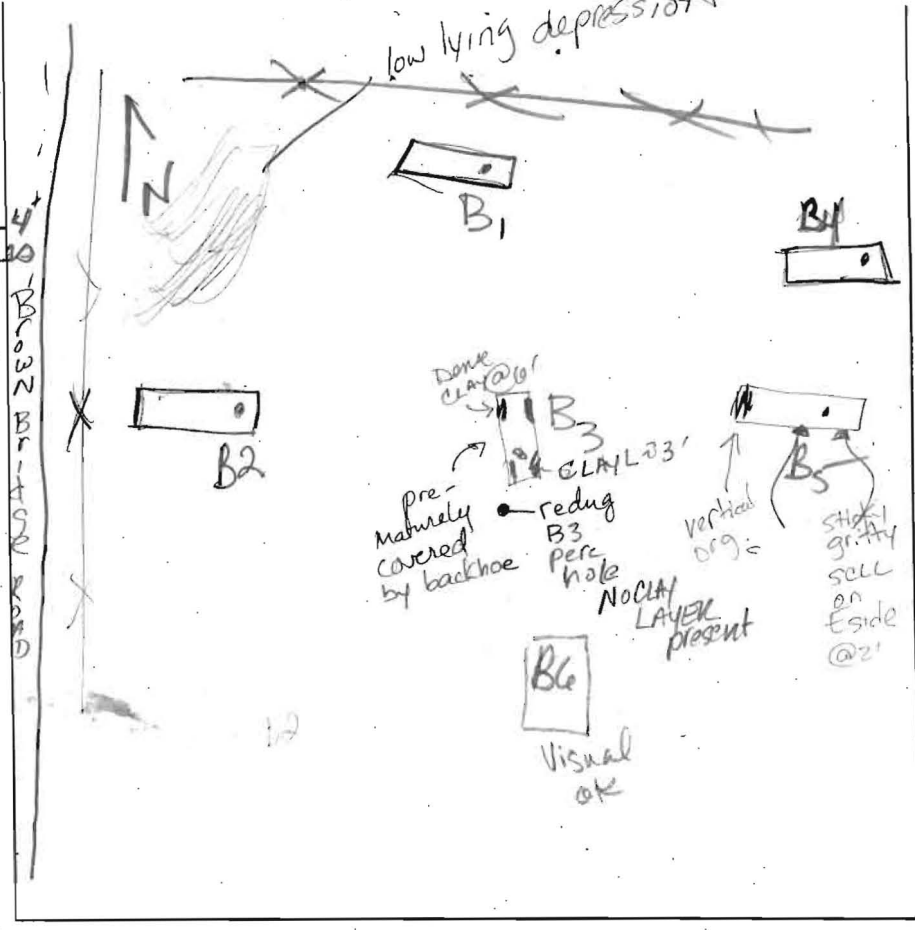 low lying depression
N
B1
B4
Brown Bridge Road
B2
Dense
CLAY@6'
B3
CLAYL@3'
pre-
maturely
covered
by backhoe
redug
B3
perc
hole
NO CLAY
LAYER
present
vertical
org.
B5
sticky
gritty
SCLL
on
E side
@2'
B6
Visual
ok